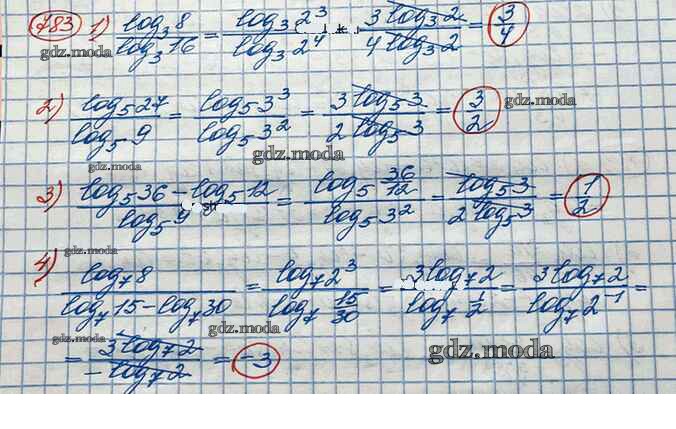 783 1) log₃8 / log₃16 = log₃2³ / log₃2⁴ = 3log₃2 / 4log₃2 = 3/4
gdz.moda
2) log₅27 / log₅9 = log₅3³ / log₅3² = 3log₅3 / 2log₅3 = 3/2
gdz.moda
gdz.moda
gdz.moda
3) log₅36 - log₅12 / log₅9 = log₅ 36/12 / log₅3² = log₅3 / 2log₅3 = 1/2
gdz.moda
4) log₇8 / log₇15 - log₇30 = log₇2³ / log₇ 15/30 = 3log₇2 / log₇ 1/2 = 3log₇2 / log₇2⁻¹ =
gdz.moda
= 3log₇2 / -log₇2 = -3
gdz.moda